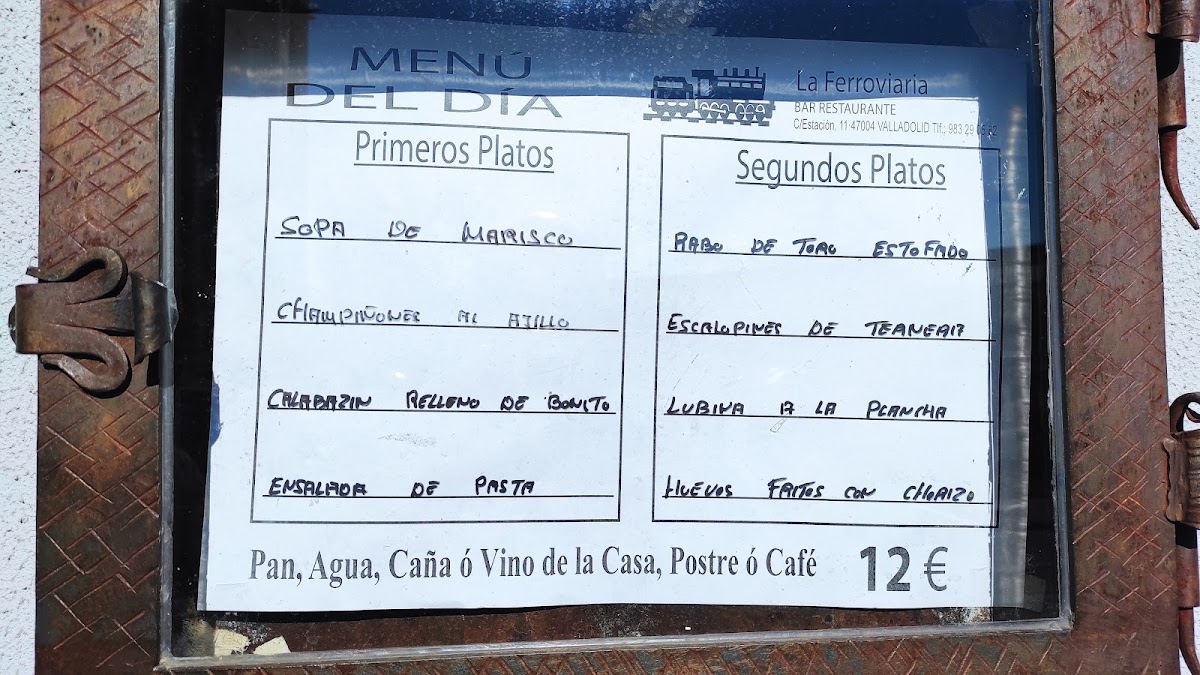 MENÚ
DEL DÍA
La Ferroviaria
BAR RESTAURANTE
C/Estación, 11·47004 VALLADOLID Tlf.: 983 29
Primeros Platos
SOPA DE MARISCO
CHAMPIÑONES AL AJILLO
CALABAZIN RELLENO DE BONITO
ENSALADA DE PASTA
Segundos Platos
RABO DE TORO ESTOFADO
ESCALOPINES DE TERNERA
LUBINA A LA PLANCHA
HUEVOS FRITOS CON CHORIZO
Pan, Agua, Caña ó Vino de la Casa, Postre ó Café 12 €